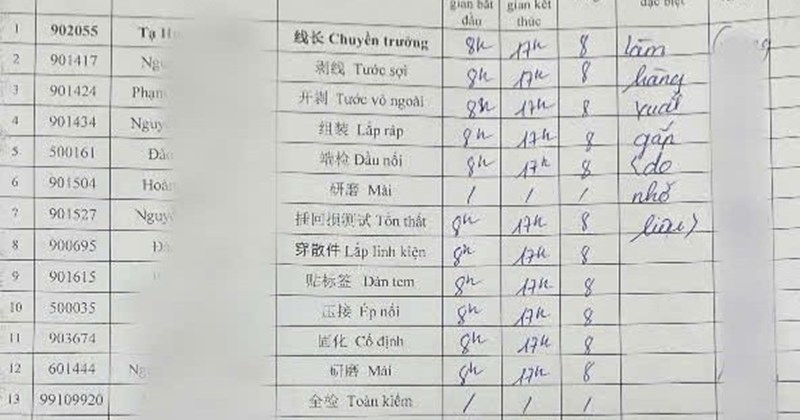 gian bắt gian kết đặc biệt
đầu thúc
1 902055 Tạ 线长 Chuyền trưởng 8h 17h 8 làm
2 901417 剥线 Tước sợi 8h 17h 8 hàng
3 901424 Phạm 开剥 Tước vỏ ngoài 8h 17h 8 xuất
4 901434 组装 Lắp ráp 8h 17h 8 gấp
5 500161 端检 Đầu nối 8h 17h 8 (do
6 901504 研磨 Mài / / / nhỡ
7 901527 插回损测试 Tổn thất 8h 17h 8
8 900695 穿散件 Lắp linh kiện 8h 17h 8
9 901615 贴标签 Dán tem 8h 17h 8
10 500035 压接 Ép nối 8h 17h 8
11 903674 固化 Cố định 8h 17h 8
12 601444 研磨 Mài 8h 17h 8
13 99109920 全检 Toàn kiểm / / /